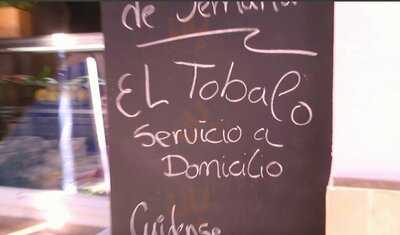 de Semana
EL Tobalo
Servicio a
Domicilio
Cuidense